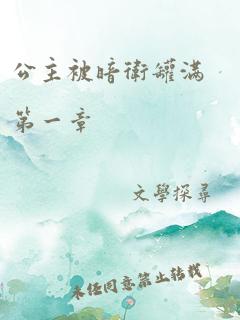 公主被暗衛罐滿
第一章
文學探尋
未任同意禁止转载